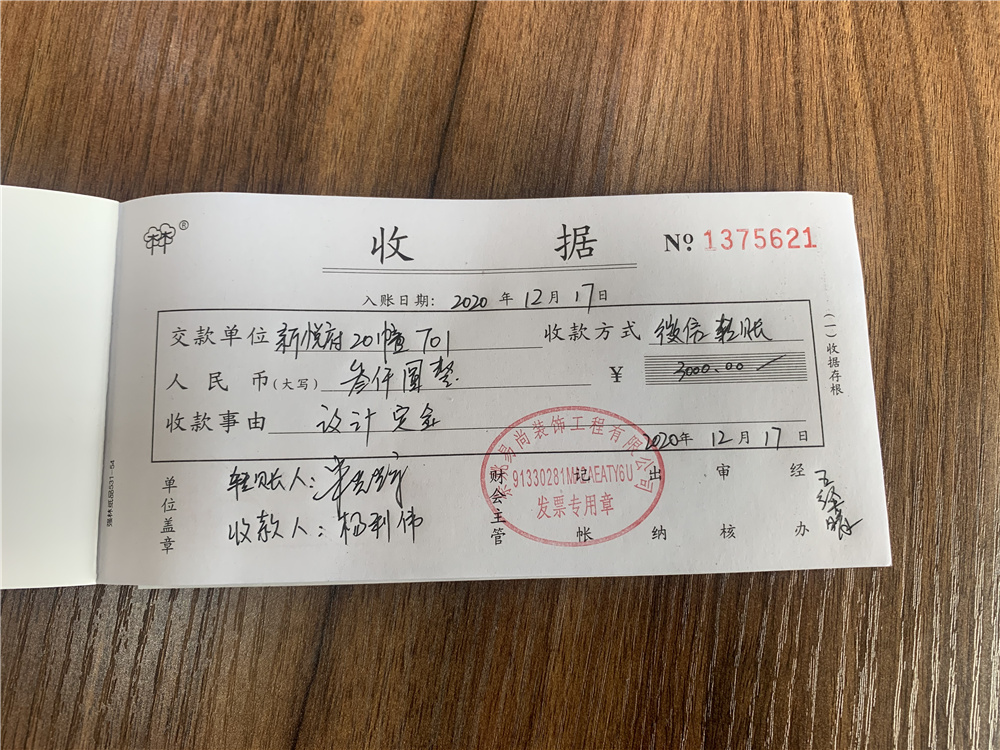 林林®
收 据 Nº 1375621
入账日期: 2020 年 12 月 17 日
交款单位 新悦府201幢 701 收款方式 微信转账
人民币(大写) 叁仟圆整 ¥ 3000.00
收款事由 设计定金
2020年 12月 17日
(一)收据存根
易尚装饰工程有限公司
发票专用章
单位盖章
转账人:
收款人: 杨利伟
财会主管 记帐 出纳 审核 经办
强林 纸品531-54